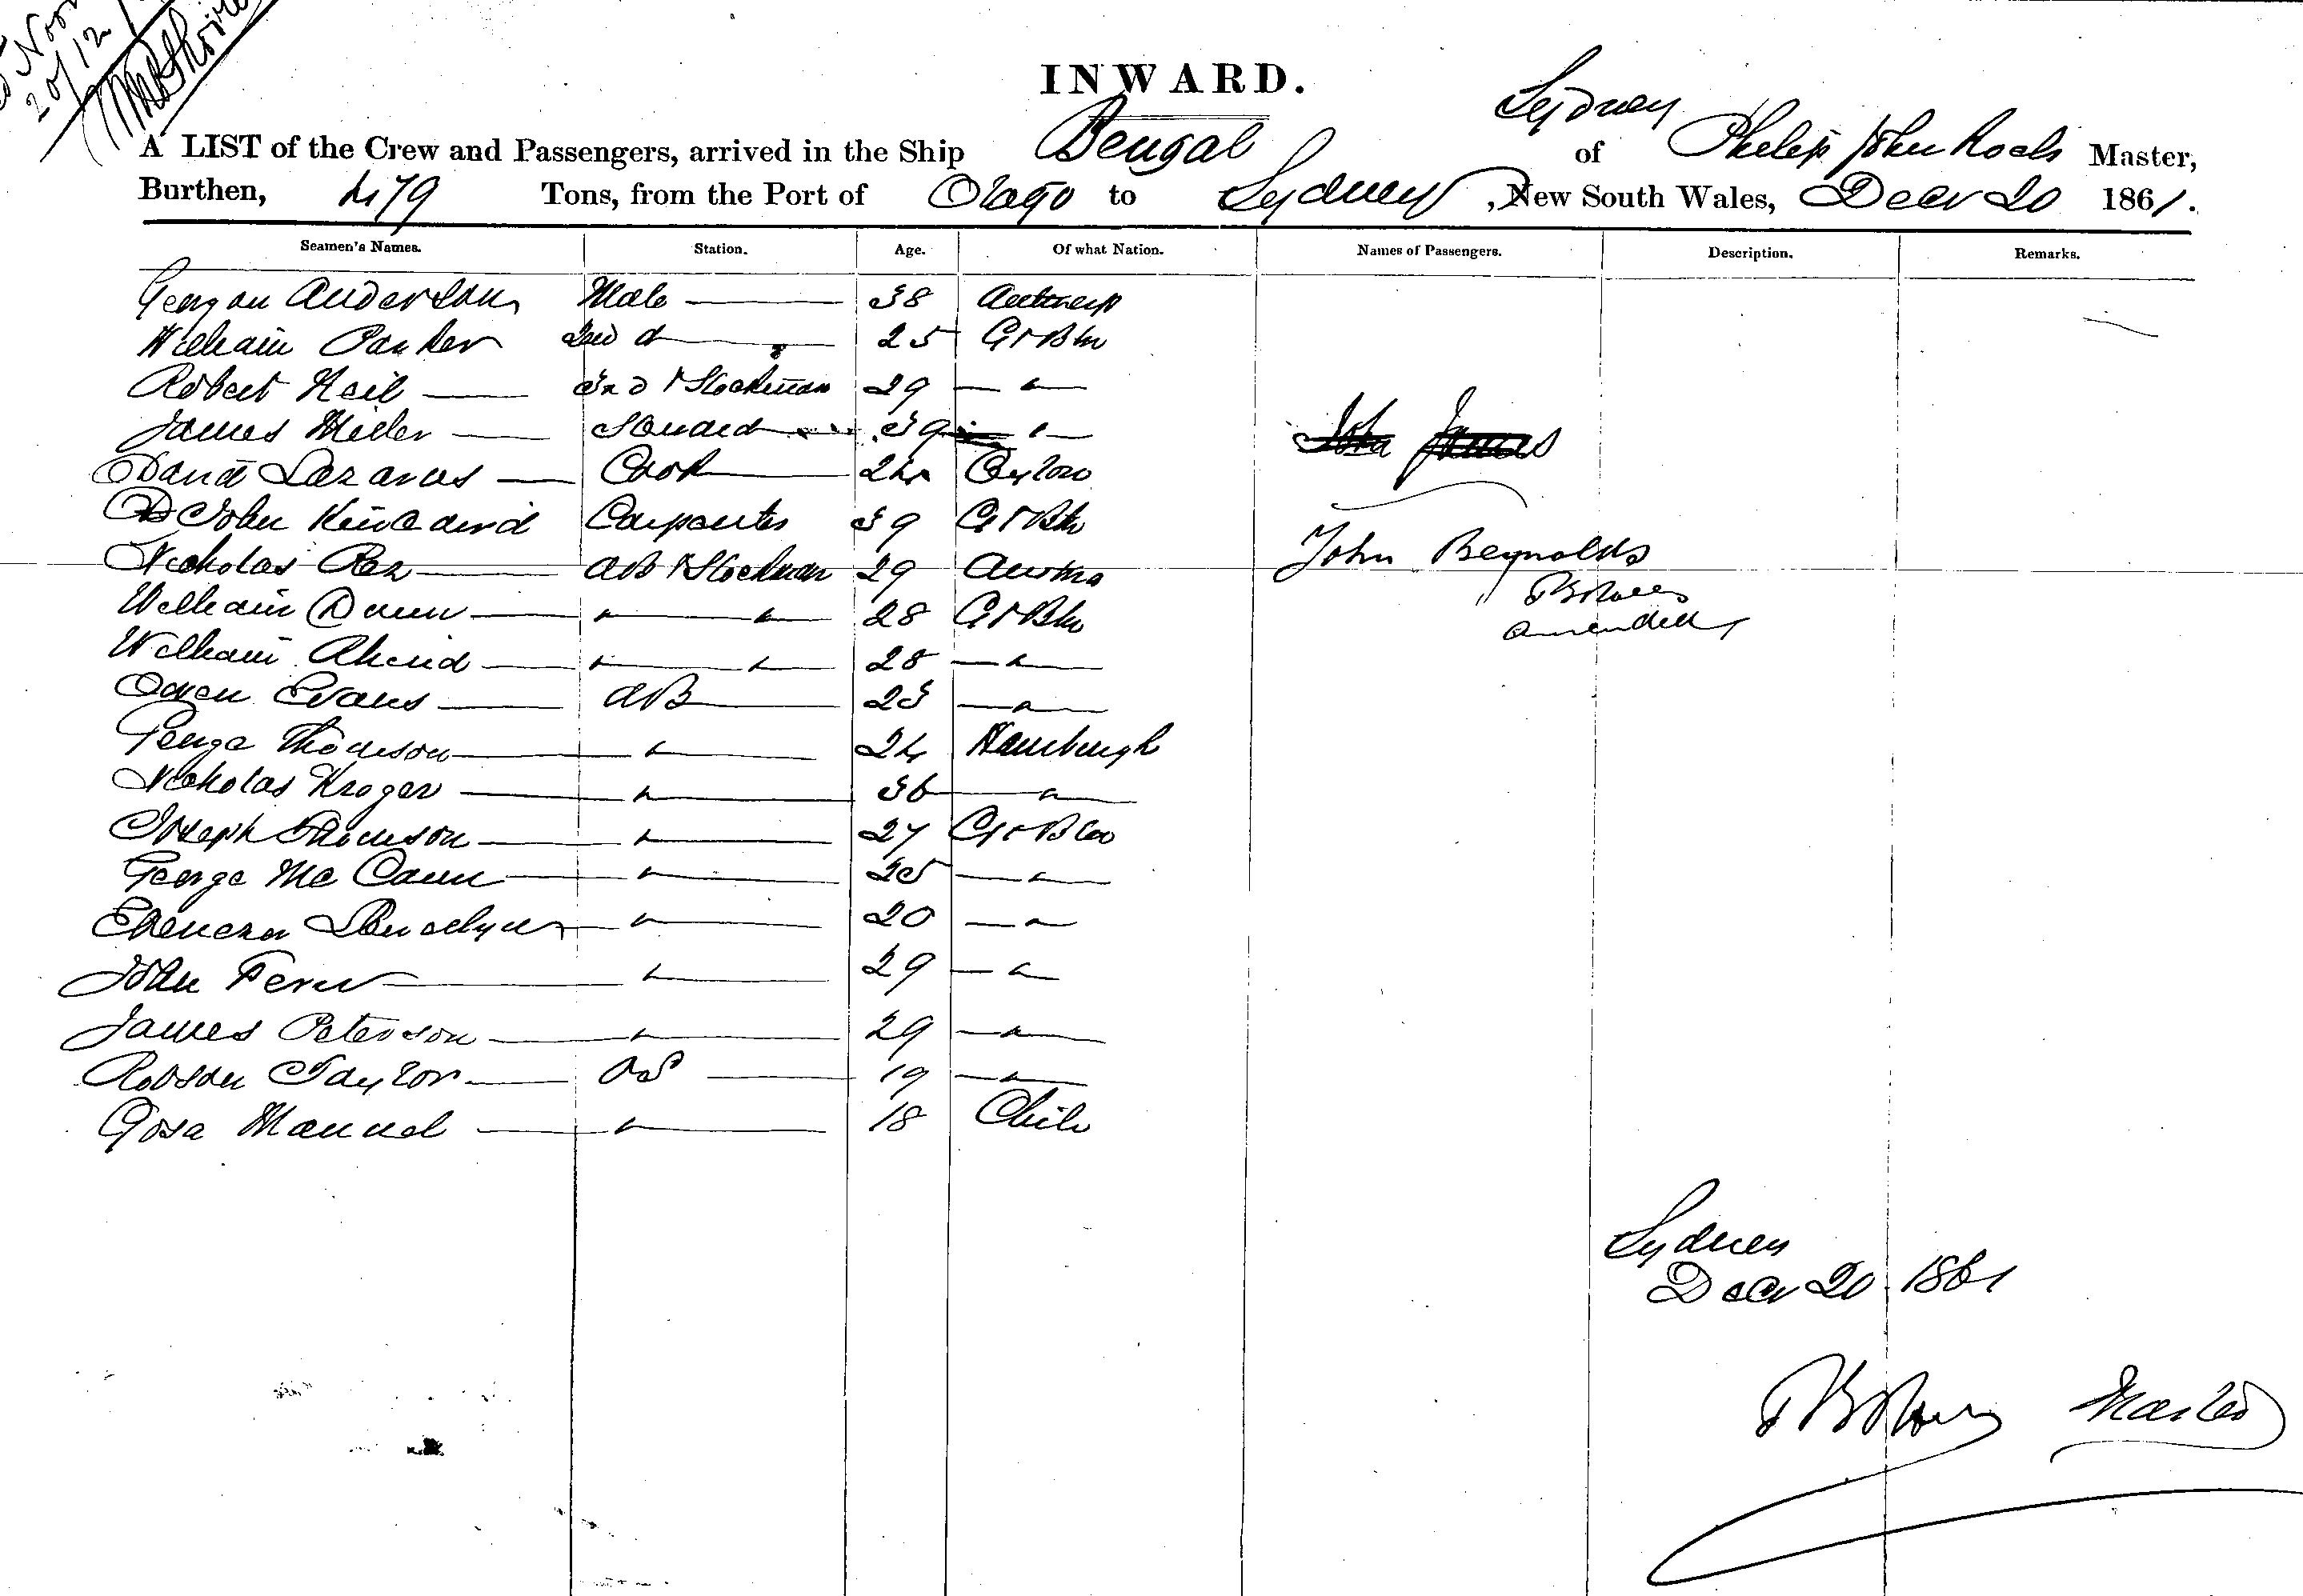 Noon
20/12/
INWARD.
Sydney
A LIST of the Crew and Passengers, arrived in the Ship Bengal of Philip John Master,
Burthen, 479 Tons, from the Port of Otago to Sydney, New South Wales, Decr 20 1861.
Seamen's Names. Station. Age. Of what Nation. Names of Passengers. Description. Remarks.
Anderson Mate 38 Antwerp
William Parker 2nd " 25 Gt Btn
Robert Neil 3rd & Stockman 29 — " —
James Miller Steward 39 — " —
John James
David Lazarus Cook 24 Ceylon
John Kincaird Carpenter 39 Gt Btn
John Reynolds
Nicholas AB & Stockman 29
William Dunn — " — " — 28 Gt Btn
amended
William — " — " — 28 — " —
Owen Evans AB 23 — " —
George Thomson — " — 24 Hamburgh
Nicholas Kroger — " — 36 — " —
Joseph Thomson — " — 27 Gt Btn
George McCann — " — 25 — " —
Ebenezer — " — 20 — " —
John Fern — " — 29 — " —
James Peterson — " — 29 — " —
Robson Taylor OS 19 — " —
Gosa Manuel — " — 18 Chili
Sydney
Decr 20 1861
Master